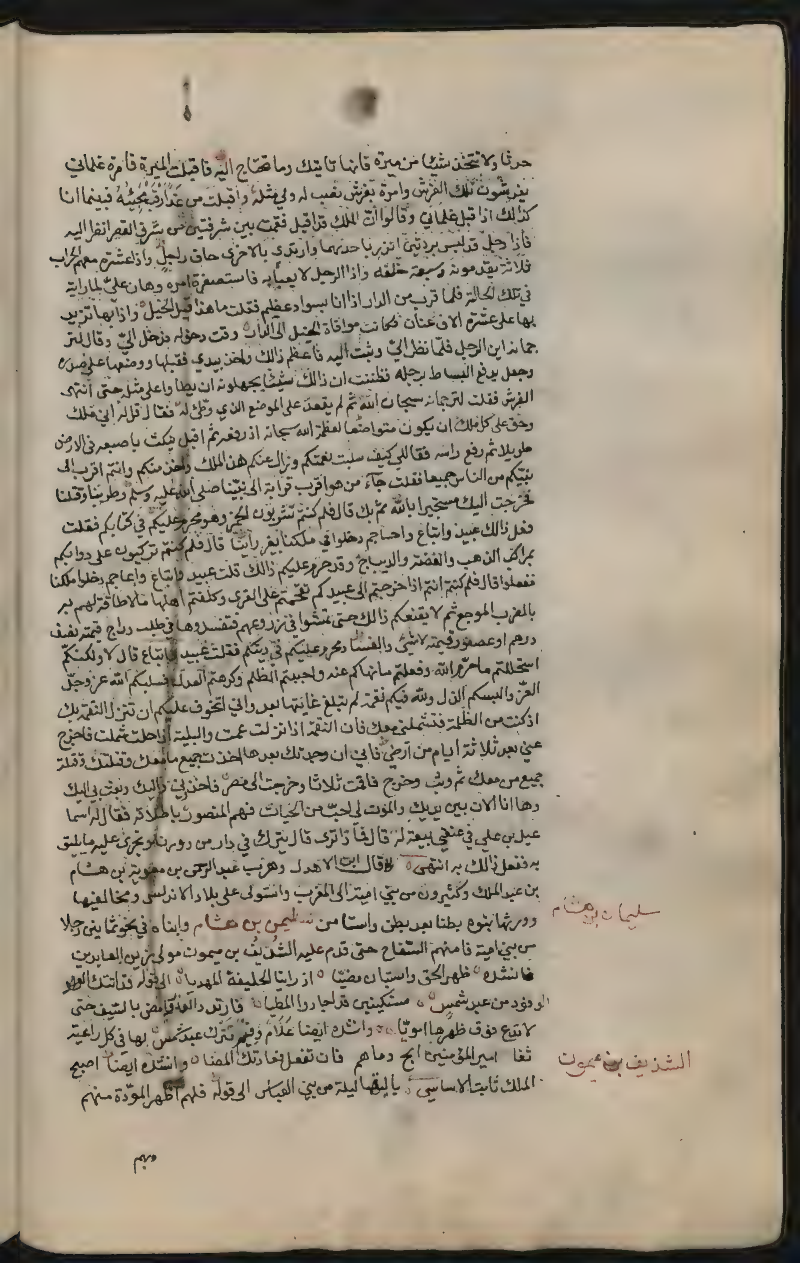 حدثا ولا تتخذ شيئا من ميرة فانها تاتيك وما تحتاج اليه فاقبلت الميرة فامرة غلماني
يفرشون تلك الفرش وامرة بفرش نصب له ولي مثله واقبلت من غد ارقب مجيئه فبينما انا
كذالك اذا قبل غلماني وقالوا ان الملك قد اقبل فقمت بين شرفتين من شرف القصر انظر اليه
فاذا رجل قد لبس بردتين اتزر باحدهما وارتدي بالاخرى حاف راجل واذا عشرة معهم الحراب
ثلاثة يقدمونه وسبعة خلفه واذا الرجل لا يعبأ به فاستصغرة امره وهان علي لما رايته
في تلك الحالة فلما قرب من الدار اذا انا بسواد عظيم فقلت ما هذا قيل الخيل واذا بها تزيد
بها على عشرة الاف عنان فكانت موافاة الخيل الى الدار وقت دخوله فدخل الي وقال لتر
جمانه اين الرجل فلما نظر الي وثبت اليه فاعظم ذالك واخذ بيدي فقبلها ووضعها على صدره
وجعل يدفع البساط برجله فظننت ان ذالك شيئا يجهلونه ان يطا وا على مثله حتى انتهى
الفرش فقلت لترجمانه سبحان الله ثم لم يقعد على الموضع الذي وطئ له فقال قل له اني ملك
وحق على كل ملك ان يكون متواضعا لعظمة الله سبحانه اذ رفعه ثم اقبل ينكث باصبعه في الارض
طويلا ثم رفع راسه فقال لي كيف سلبت نعمتكم وزال عنكم هذا الملك واخذ منكم وانتم اقرب الى
نبيكم من الناس جميعا فقلت جاء من هو اقرب قرابة الى نبينا صلى الله عليه وسلم وطردنا وقتلنا
فخرجت اليك مستجيرا بالله ثم بك قال فلم كنتم تشربون الخمر وهو محرم عليكم في كتابكم فقلت
فعل ذالك عبيد واتباع واعاجم دخلوا في ملكنا بغير راينا قال فلم كنتم تركبون على دوابكم
بمراكب الذهب والفضة والديباج وقد حرم عليكم ذالك قلت عبيد واتباع واعاجم دخلوا ملكنا
ففعلوا قال فلم كنتم انتم اذا خرجتم الى عبيدكم تقحمتم على القرى وكلفتم اهلها ما لا طاقة لهم به
بالضرب الموجع ثم لا يقنعكم ذالك حتى تمشوا في زروعهم فتفسدوها في طلب دراج قيمته نصف
درهم او عصفور قيمته لا شئ والفساد محرم عليكم في دينكم فقلت عبيد واتباع قال لا ولكنكم
استحللتم ما حرم الله وفعلتم ما نهاكم عنه واحببتم الظلم وكرهتم العدل فسلبكم الله عز وجل
العز والبسكم الذل ولله فيكم نقمة لم تبلغ غايتها بعد واني اتخوف عليكم ان تنزل النقمة بك
اذ كنت من الظلمة فتشملني معك فان النقمة اذا نزلت عمت والبلية اذا حلت شملت فاخرج
عني بعد ثلاثة ايام من ارضي فاني ان وجدتك بعدها اخذت جميع ما معك وقتلتك وقتلة
جميع من معك ثم وثب وخرج فاقمت ثلاثا وخرجت الى مصر فاخذني واليك وبعث بي اليك
وها انا الان بين يديك والموت لي احب من الحيات فهم المنصور باطلاقه فقال له اسما
عيل بن علي في عنقي بيعة له قال فماذا ترى قال يترك في دار من دورنا ويجرى عليه ما يليق
به ففعل ذالك به انتهى قال ابن الاهدل وهرب عبد الرحمن بن معوية بن هشام
بن عبد الملك وكثيرون من بني امية الى المغرب واستولى على بلاد الاندلس ومخالفيها
وورثها بنوه بطنا بعد بطن واستامن سليمن بن هشام وابناه في نحو ثمانين رجلا
من بني امية فامنهم السفاح حتى قدم عليه الشذيف بن ميمون مولى زين العابدين
فانشده ظهر الحق واستبان مضيئا اذ راينا الخليفة المهديا الى قوله قد اتتك الوفود
من عبد شمس مستكينين قد اجادوا المطيا فارتد دالغدر وامض بالسيف حتى
لا تدع فوق ظهرها امويا وانشده ايضا علام وفيم تترك عبد شمس لها في كل راعية
ثغا امير المؤمنين ابح دماهم فان تفعل فعادتك المضا وانشده ايضا اصبح
الملك ثابت الاساسي بالبهاليل من بني العباس الى قوله فلهم اظهر المودة منهم
وبهم
سليمان بن هشام
الشذيف بن ميمون